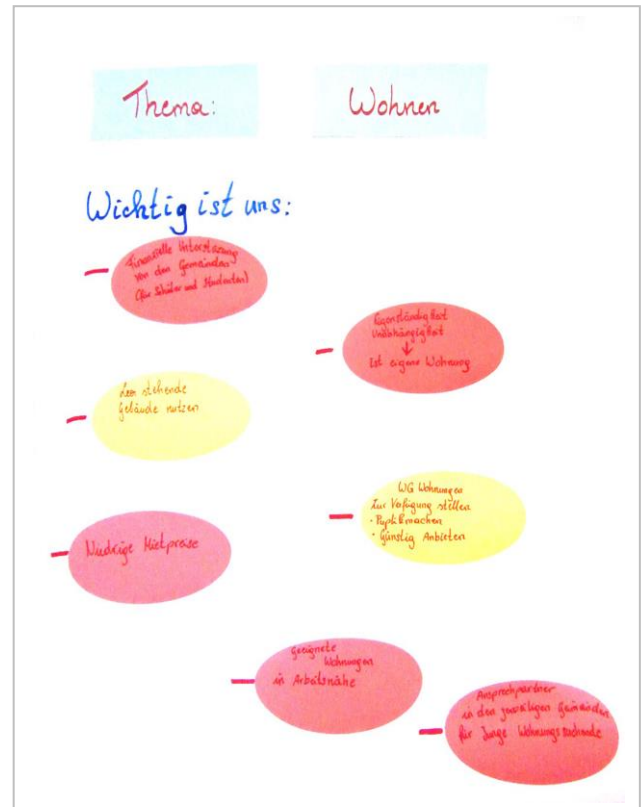 Thema:
Wohnen
Wichtig ist uns:
Finanzielle Unterstützung
von den Gemeinden
(für Schüler und Studenten)
Eigenständigkeit
Unabhängigkeit
↓
Ist eigene Wohnung
Leer stehende
Gebäude nutzen
WG Wohnungen
Zur Verfügung stellen
• Puplik machen
• Günstig Anbieten
Niedrige Mietpreise
Geeignete
Wohnungen
in Arbeitsnähe
Ansprechpartner
in den jeweiligen Gemeinden
für Junge Wohnungssuchende